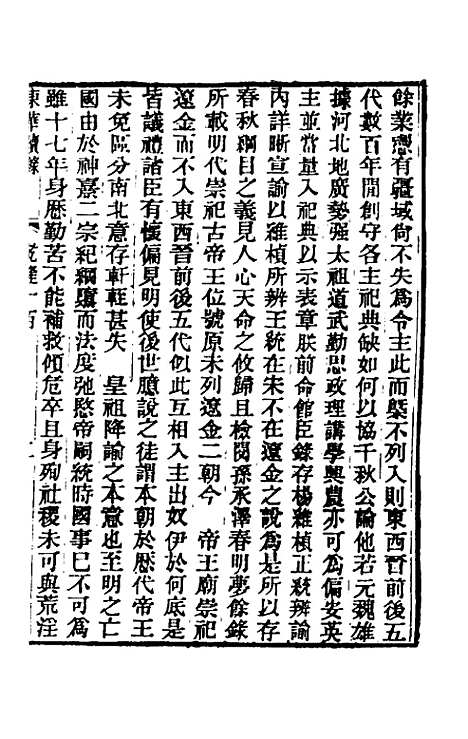 餘業憑有疆域尙不失爲令主此而槩不列入則東西晉前後五
代數百年閒創守各主祀典缺如何以協千秋公論他若元魏雄
據河北地廣勢强太祖道武勤思政理講學興農亦可爲偏安英
主並當量入祀典以示表章朕前命館臣錄存楊維楨正統辨諭
內詳晰宣諭以維楨所辨正統在宋不在遼金之說爲是所以存
春秋綱目之義見人心天命之攸歸且檢閱孫承澤春明夢餘錄
所載明代崇祀古帝王位號原未列遼金二朝今　帝王廟崇祀
遼金而不入東西晉前後五代似此互相入主出奴伊於何底是
皆議禮諸臣有懷偏見明使後世臆說之徒謂本朝於歷代帝王
未免區分南北意存軒輊甚失　皇祖降諭之本意也至明之亡
國由於神熹二宗紀綱隳而法度弛愍帝嗣統時國事已不可爲
雖十七年身歷勤苦不能補救傾危卒且身殉社稷未可與荒淫
東華續錄　乾隆一百